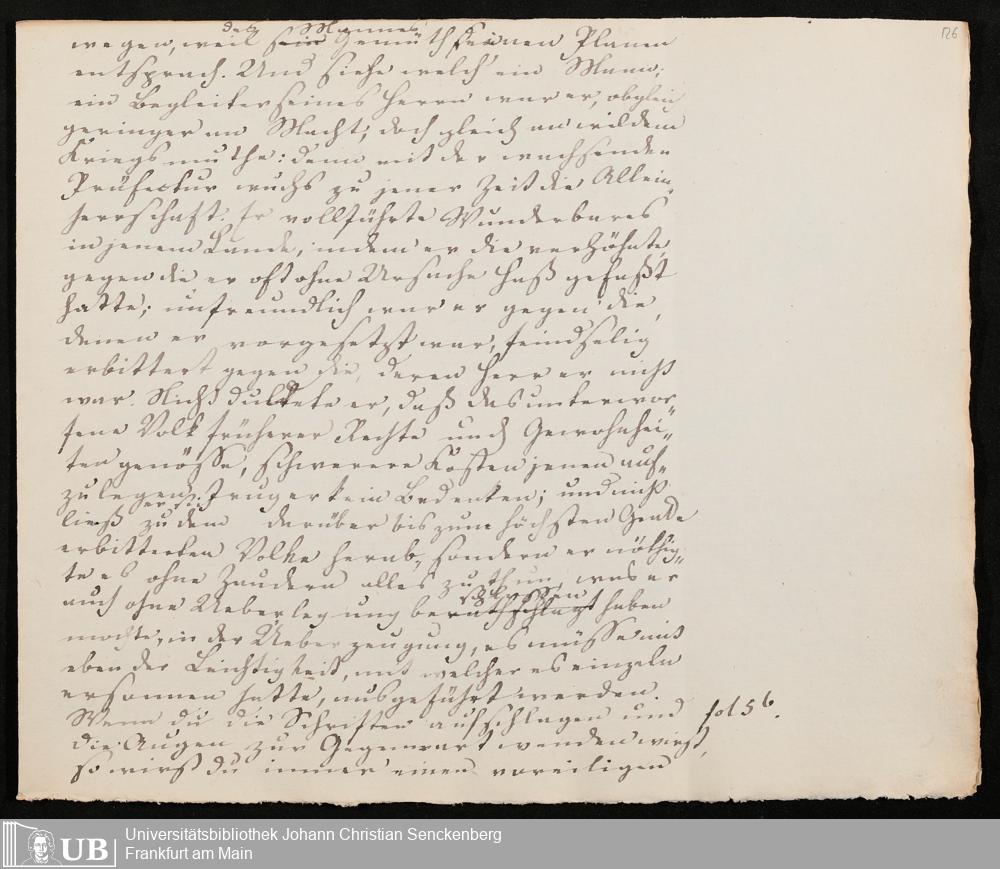 126
des Mannes
wegen, weil sein Gemüth seinen Planen
entsprach. Und siehe welch' ein Mann;
ein Begleiter seines Herrn war er, obgleich
geringer an Macht; doch gleich an wildem
Kriegsmuthe: denn mit der wachsenden
Präfectur wuchs zu jener Zeit die Allein-
herrschaft. Er vollführte Wunderbares
in jenem Lande, indem er die verhöhnte,
gegen die er oft ohne Ursache Haß gefaßt
hatte; unfreundlich war er gegen die,
denen er vorgesetzt war, feindselig
erbittert gegen die, deren Herr er nicht
war. Nicht duldete er, daß das unterwor-
fene Volk früherer Rechte und Gewohnhei-
ten genösse, schwerere Kosten jenen auf-
zulegen, trug er kein Bedenken; und nicht
ließ er sich zu dem darüber bis zum höchsten Grade
erbitterten Volke herab, sondern er nöthig-
te es ohne Zaudern alles zu thun, was er
schlossen
auch ohne Ueberlegung berathschlagt haben
mochte, in der Ueberzeugung, es müsse mit
eben der Leichtigkeit, mit welcher es einzeln
ersonnen hatte, ausgeführt werden.
Wenn du die Schriften aufschlagen und fol 56.
die Augen zur Gegenwart wenden wirst,
so wirst du immer einen voreiligen
UB
Universitätsbibliothek Johann Christian Senckenberg
Frankfurt am Main